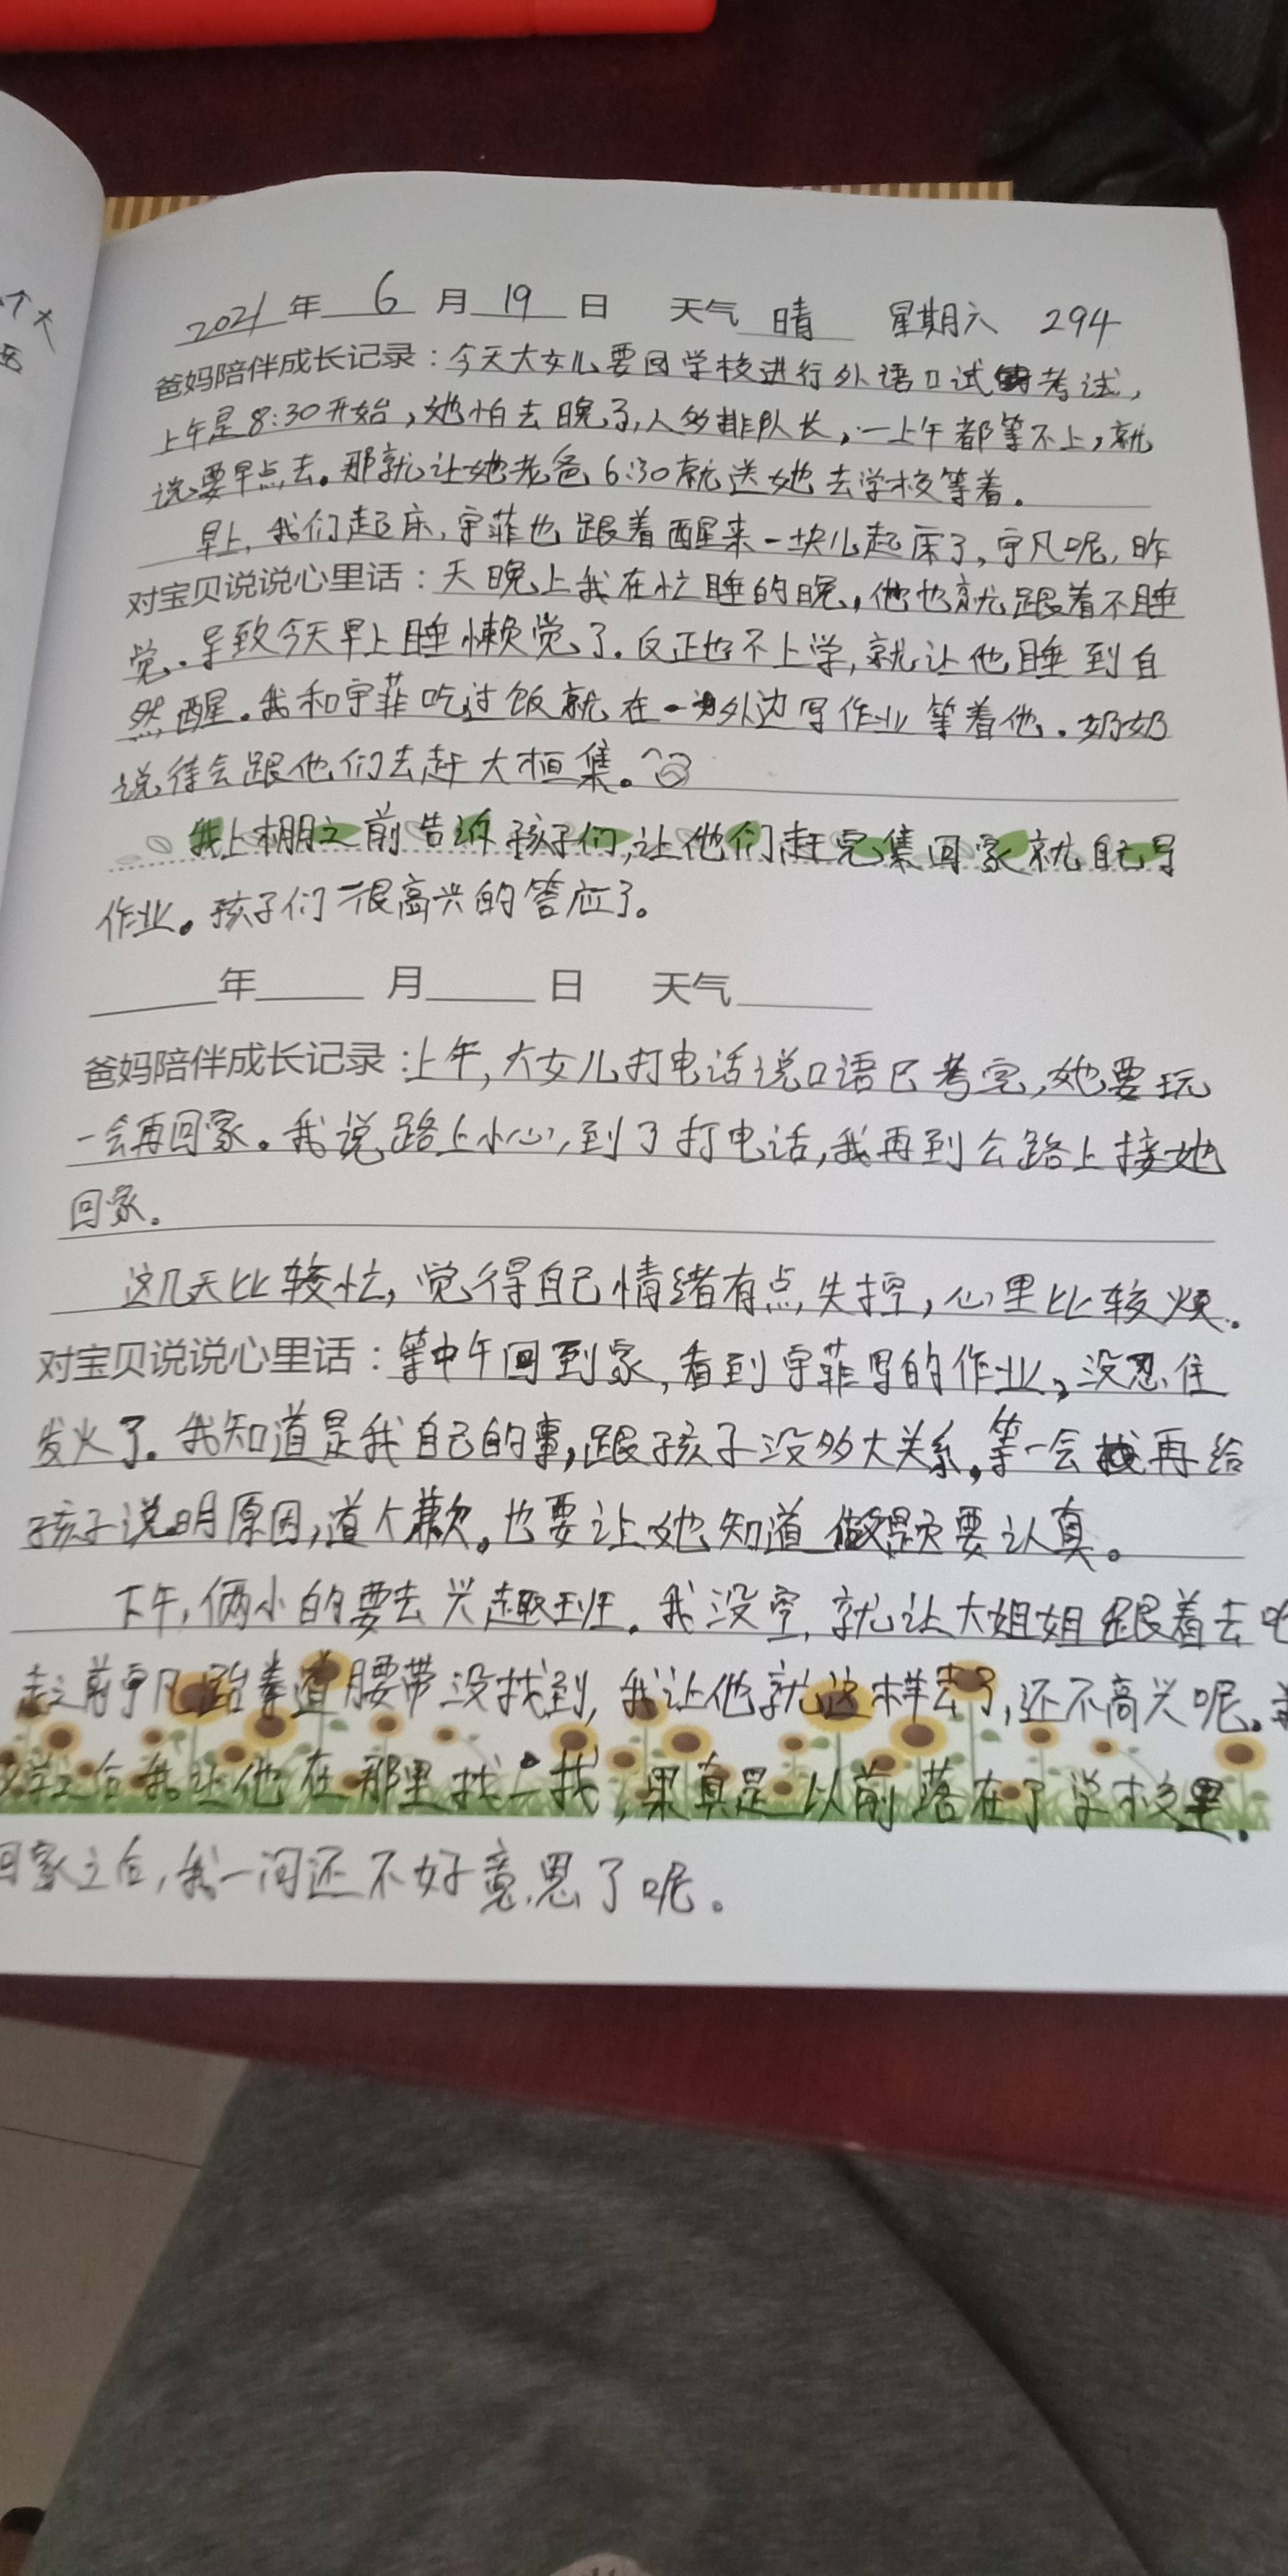 2021年 6 月 19 日 天气 晴 星期六 294
爸妈陪伴成长记录：今天大女儿要回学校进行外语口试考试，
上午是8:30开始，她怕去晚了，人多排队长，一上午都等不上，就
说要早点去。那就让她老爸6:30就送她去学校等着。
早上，我们起床，宇菲也跟着醒来一块儿起床了，宇凡呢，昨
对宝贝说说心里话：天晚上我在忙睡的晚，他也就跟着不睡
觉。导致今天早上睡懒觉了。反正也不上学，就让他睡到自
然醒。我和宇菲吃过饭就在外边写作业等着他。奶奶
说待会跟他们去赶大桓集。
我上棚之前告诉孩子们，让他们赶完集回家就自己写
作业。孩子们很高兴的答应了。
年 月 日 天气
爸妈陪伴成长记录：上午，大女儿打电话说口语已考完，她要玩
一会再回家。我说路上小心，到了打电话，我再到公路上接她
回家。
这几天比较忙，觉得自己情绪有点失控，心里比较烦。
对宝贝说说心里话：等中午回到家，看到宇菲写的作业，没忍住
发火了。我知道是我自己的事，跟孩子没多大关系，等一会再给
孩子说明原因，道个歉。也要让她知道做题要认真。
下午，俩小的要去兴趣班。我没空，就让大姐姐跟着去
走之前宇凡跆拳道腰带没找到，我让他就这样去了，还不高兴呢。
学之后我让他在那里找一找，果真是以前落在了学校里。
回家之后，我一问还不好意思了呢。
个大